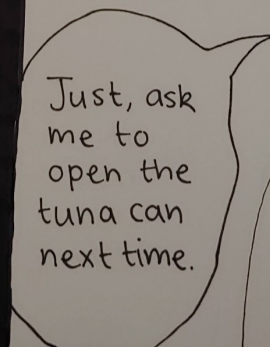 Just, ask
me to
open the
tuna can
next time.